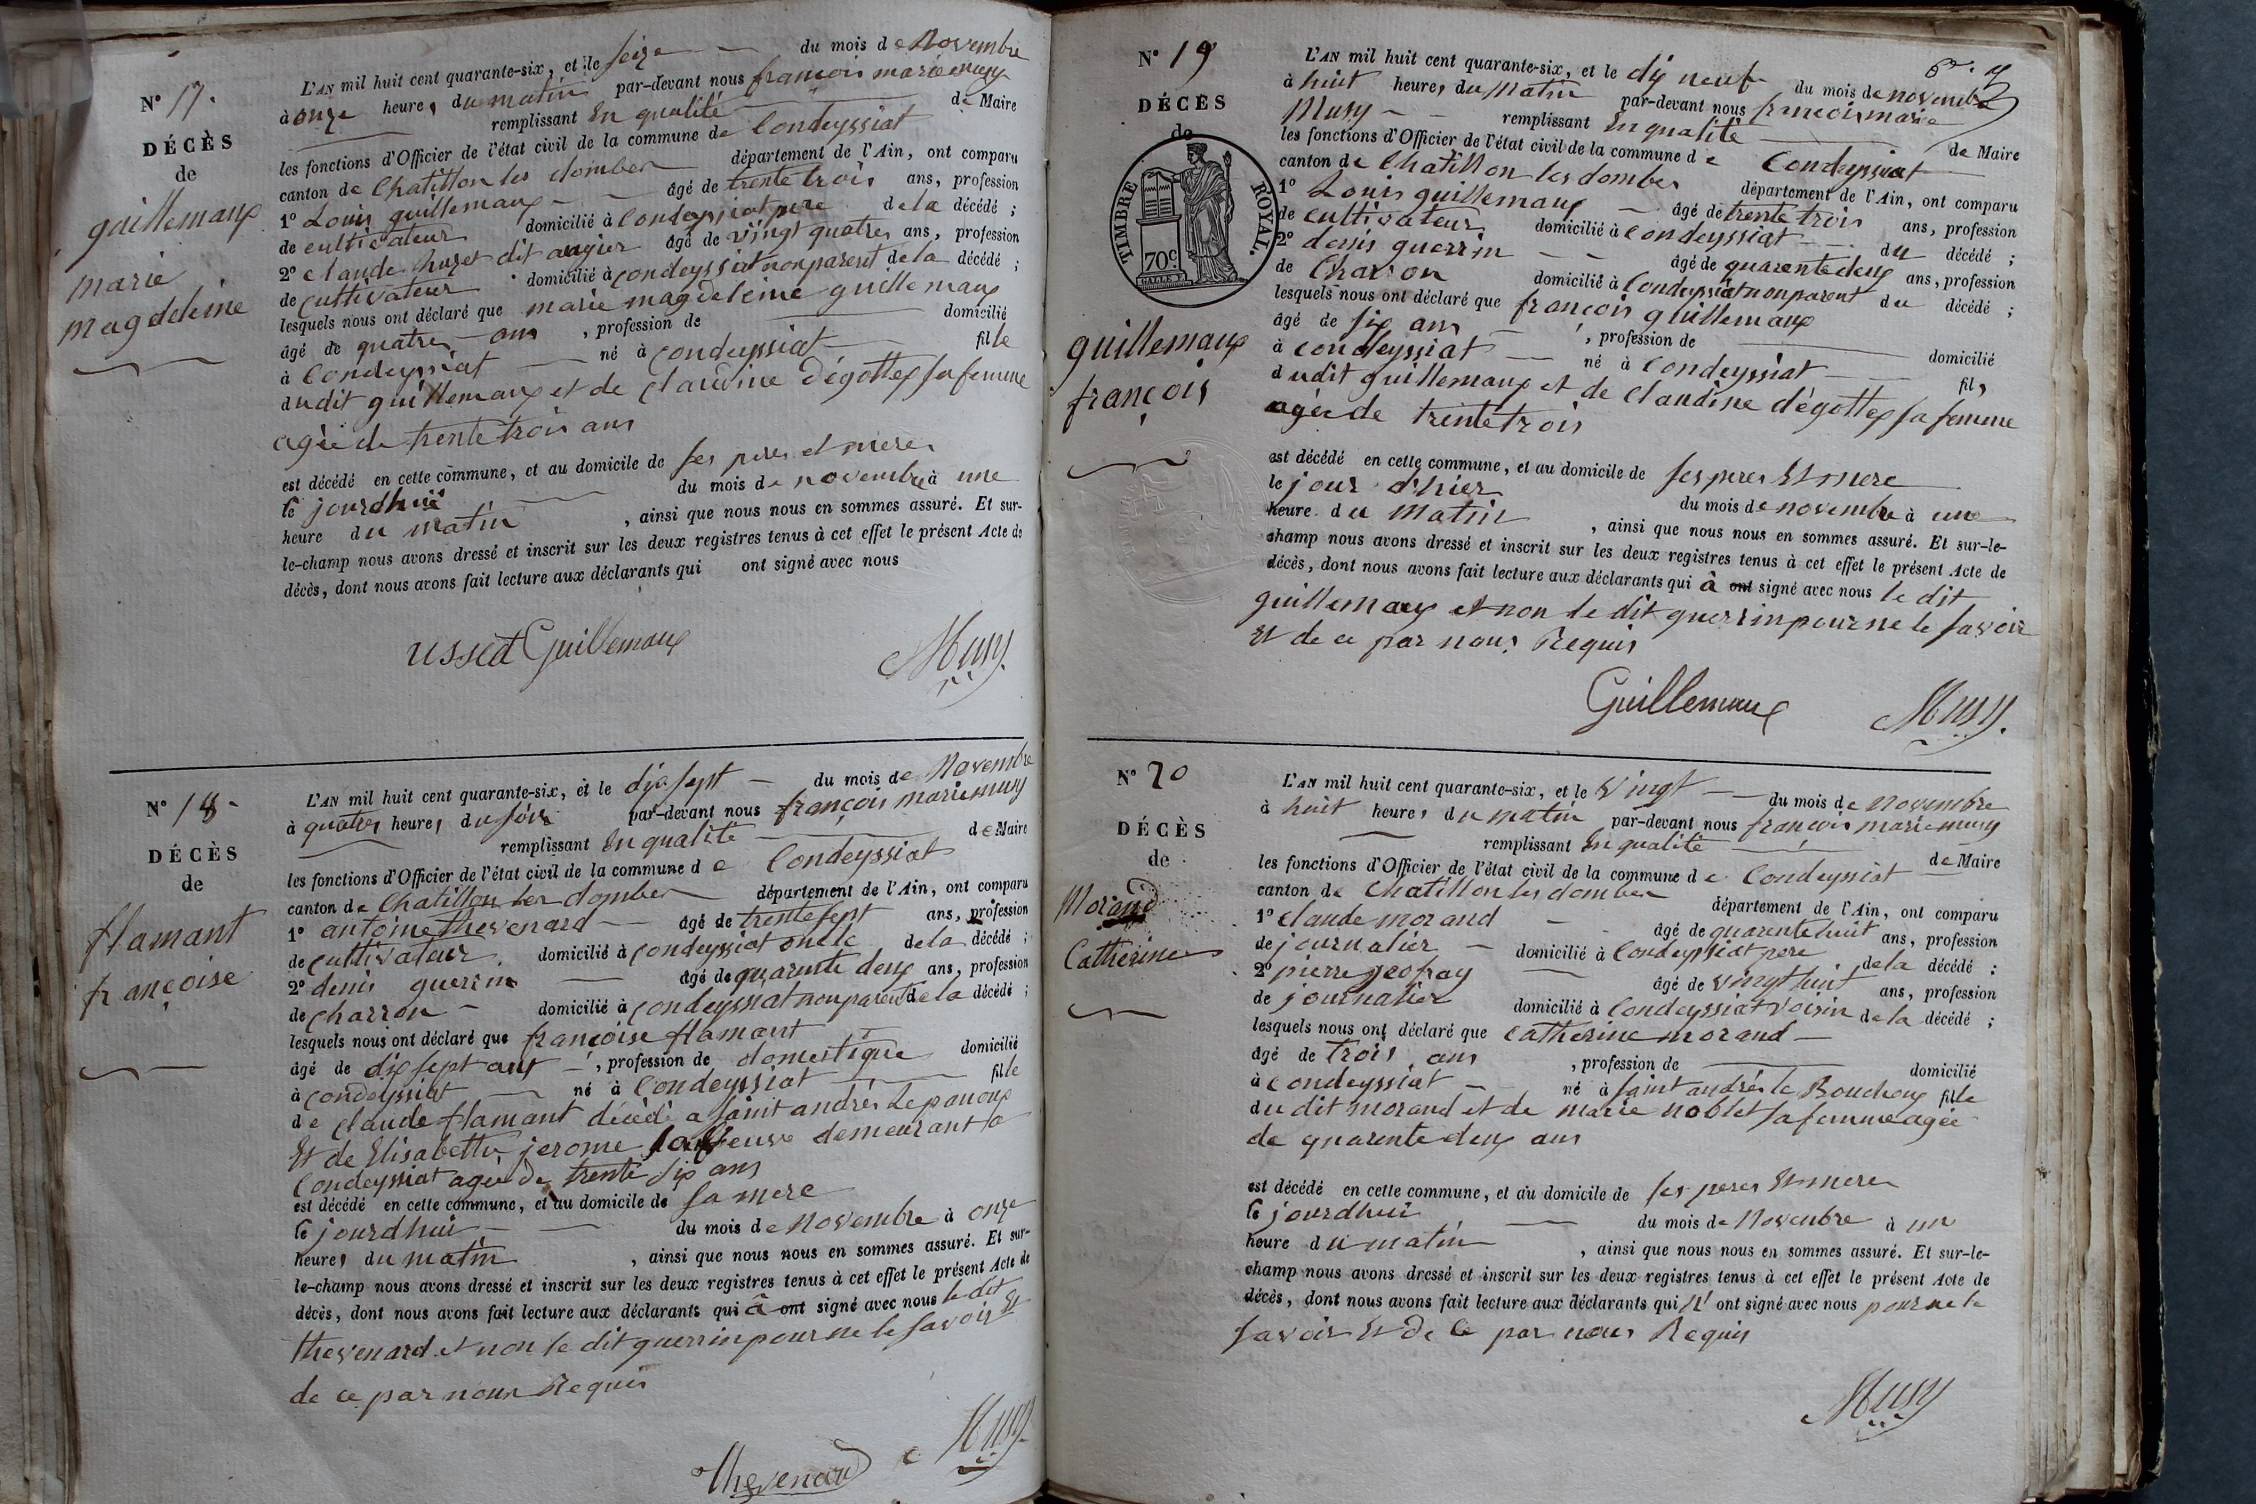 N° 17.
DÉCÈS
de
guillemaux
marie
magdeleine
L'AN mil huit cent quarante-six, et le seize du mois de Novembre
à onze heures du matin par-devant nous françois marie musy
remplissant En qualité de Maire
les fonctions d'Officier de l'état civil de la commune de Condeyssiat
canton de Chatillon les dombes département de l'Ain, ont comparu
1° Louis guillemaux âgé de trente trois ans, profession
de cultivateur domicilié à Condeyssiat pere de la décédé ;
2° claude huzet dit augier âgé de vingt quatre ans, profession
de cultivateur domicilié à condeyssiat non parent de la décédé ;
lesquels nous ont déclaré que marie magdeleine guillemaux
âgé de quatre ans , profession de domicilié
à Condeyssiat né à Condeyssiat fille
dudit guillemaux et de claudine dégottex sa femme
agée de trente trois ans
est décédé en cette commune, et au domicile de ses peres et meres
le jourdhui du mois de novembre à une
heure du matin , ainsi que nous nous en sommes assuré. Et sur-
le-champ nous avons dressé et inscrit sur les deux registres tenus à cet effet le présent Acte de
décès, dont nous avons fait lecture aux déclarants qui ont signé avec nous
Guillemaux Musy.
N° 18
DÉCÈS
de
flamant
françoise
L'AN mil huit cent quarante-six, et le dix sept du mois de Novembre
à quatres heures du soir par-devant nous françois marie musy
remplissant En qualité de Maire
les fonctions d'Officier de l'état civil de la commune de Condeyssiat
canton de Chatillon les dombes département de l'Ain, ont comparu
1° antoine thevenard âgé de trente sept ans, profession
de cultivateur domicilié à condeyssiat oncle de la décédé ;
2° denis guerrin âgé de quarente deux ans, profession
de charron domicilié à condeyssiat non parent de la décédé ;
lesquels nous ont déclaré que françoise flamant
âgé de dix sept ans , profession de domestique domicilié
à condeyssiat né à Condeyssiat fille
de claude flamant décédé a saint andrés Le panoux
Et de Elisabette jerome sa veuve demeurant a
Condeyssiat agée de trente six ans
est décédé en cette commune, et au domicile de sa mere
le jourdhui du mois de Novembre à onze
heures du matin , ainsi que nous nous en sommes assuré. Et sur-
le-champ nous avons dressé et inscrit sur les deux registres tenus à cet effet le présent Acte de
décès, dont nous avons fait lecture aux déclarants qui â ont signé avec nous le dit
thevenard et non le dit guerrin pour ne le savoir Et
de ce par nous Requis
Thevenard Musy
N° 19
DÉCÈS
de
TIMBRE ROYAL.
70c
guillemaux
françois
L'AN mil huit cent quarante-six, et le dix neuf du mois de novembre
à huit heures du Matin par-devant nous francois marie
Musy remplissant En qualité de Maire
les fonctions d'Officier de l'état civil de la commune de Condeyssiat
canton de Chatillon les dombes département de l'Ain, ont comparu
1° Louis guillemaux âgé de trente trois ans, profession
de cultivateur domicilié à Condeyssiat du décédé ;
2° denis guerrin âgé de quarente deux ans, profession
de Charron domicilié à Condeyssiat non parent du décédé ;
lesquels nous ont déclaré que françois guillemaux
âgé de six ans , profession de domicilié
à condeyssiat né à Condeyssiat fils
dudit guillemaux et de claudine dégottex sa femme
agée de trente trois
est décédé en cette commune, et au domicile de ses peres Et mere
le jour d'hier du mois de novembre à une
heure du Matin , ainsi que nous nous en sommes assuré. Et sur-le-
champ nous avons dressé et inscrit sur les deux registres tenus à cet effet le présent Acte de
décès, dont nous avons fait lecture aux déclarants qui â ont signé avec nous le dit
guillemaux et non le dit guerrin pour ne le savoir
Et de ce par nous Requis
Guillemaux Musy.
N° 20
DÉCÈS
de
Morand
Catherine
L'AN mil huit cent quarante-six, et le Vingt du mois de Novembre
à huit heures du matin par-devant nous françois marie musy
remplissant En qualité de Maire
les fonctions d'Officier de l'état civil de la commune de Condeyssiat
canton de Chatillon les dombes département de l'Ain, ont comparu
1° Claude morand âgé de quarente huit ans, profession
de journalier domicilié à Condeyssiat pere de la décédé ;
2° pierre geofray âgé de vingt huit ans, profession
de journalier domicilié à Condeyssiat voisin de la décédé ;
lesquels nous ont déclaré que Catherine morand
âgé de trois ans , profession de domicilié
à condeyssiat né à saint andrés le Bouchoux fille
du dit morand et de marie noblet sa femme agée
de quarente deux ans
est décédé en cette commune, et au domicile de ses peres Et mere
le jourdhui du mois de Novembre à un
heure du matin , ainsi que nous nous en sommes assuré. Et sur-le-
champ nous avons dressé et inscrit sur les deux registres tenus à cet effet le présent Acte de
décès, dont nous avons fait lecture aux déclarants qui n' ont signé avec nous pour ne le
savoir Et de Ce par nous Requis
Musy